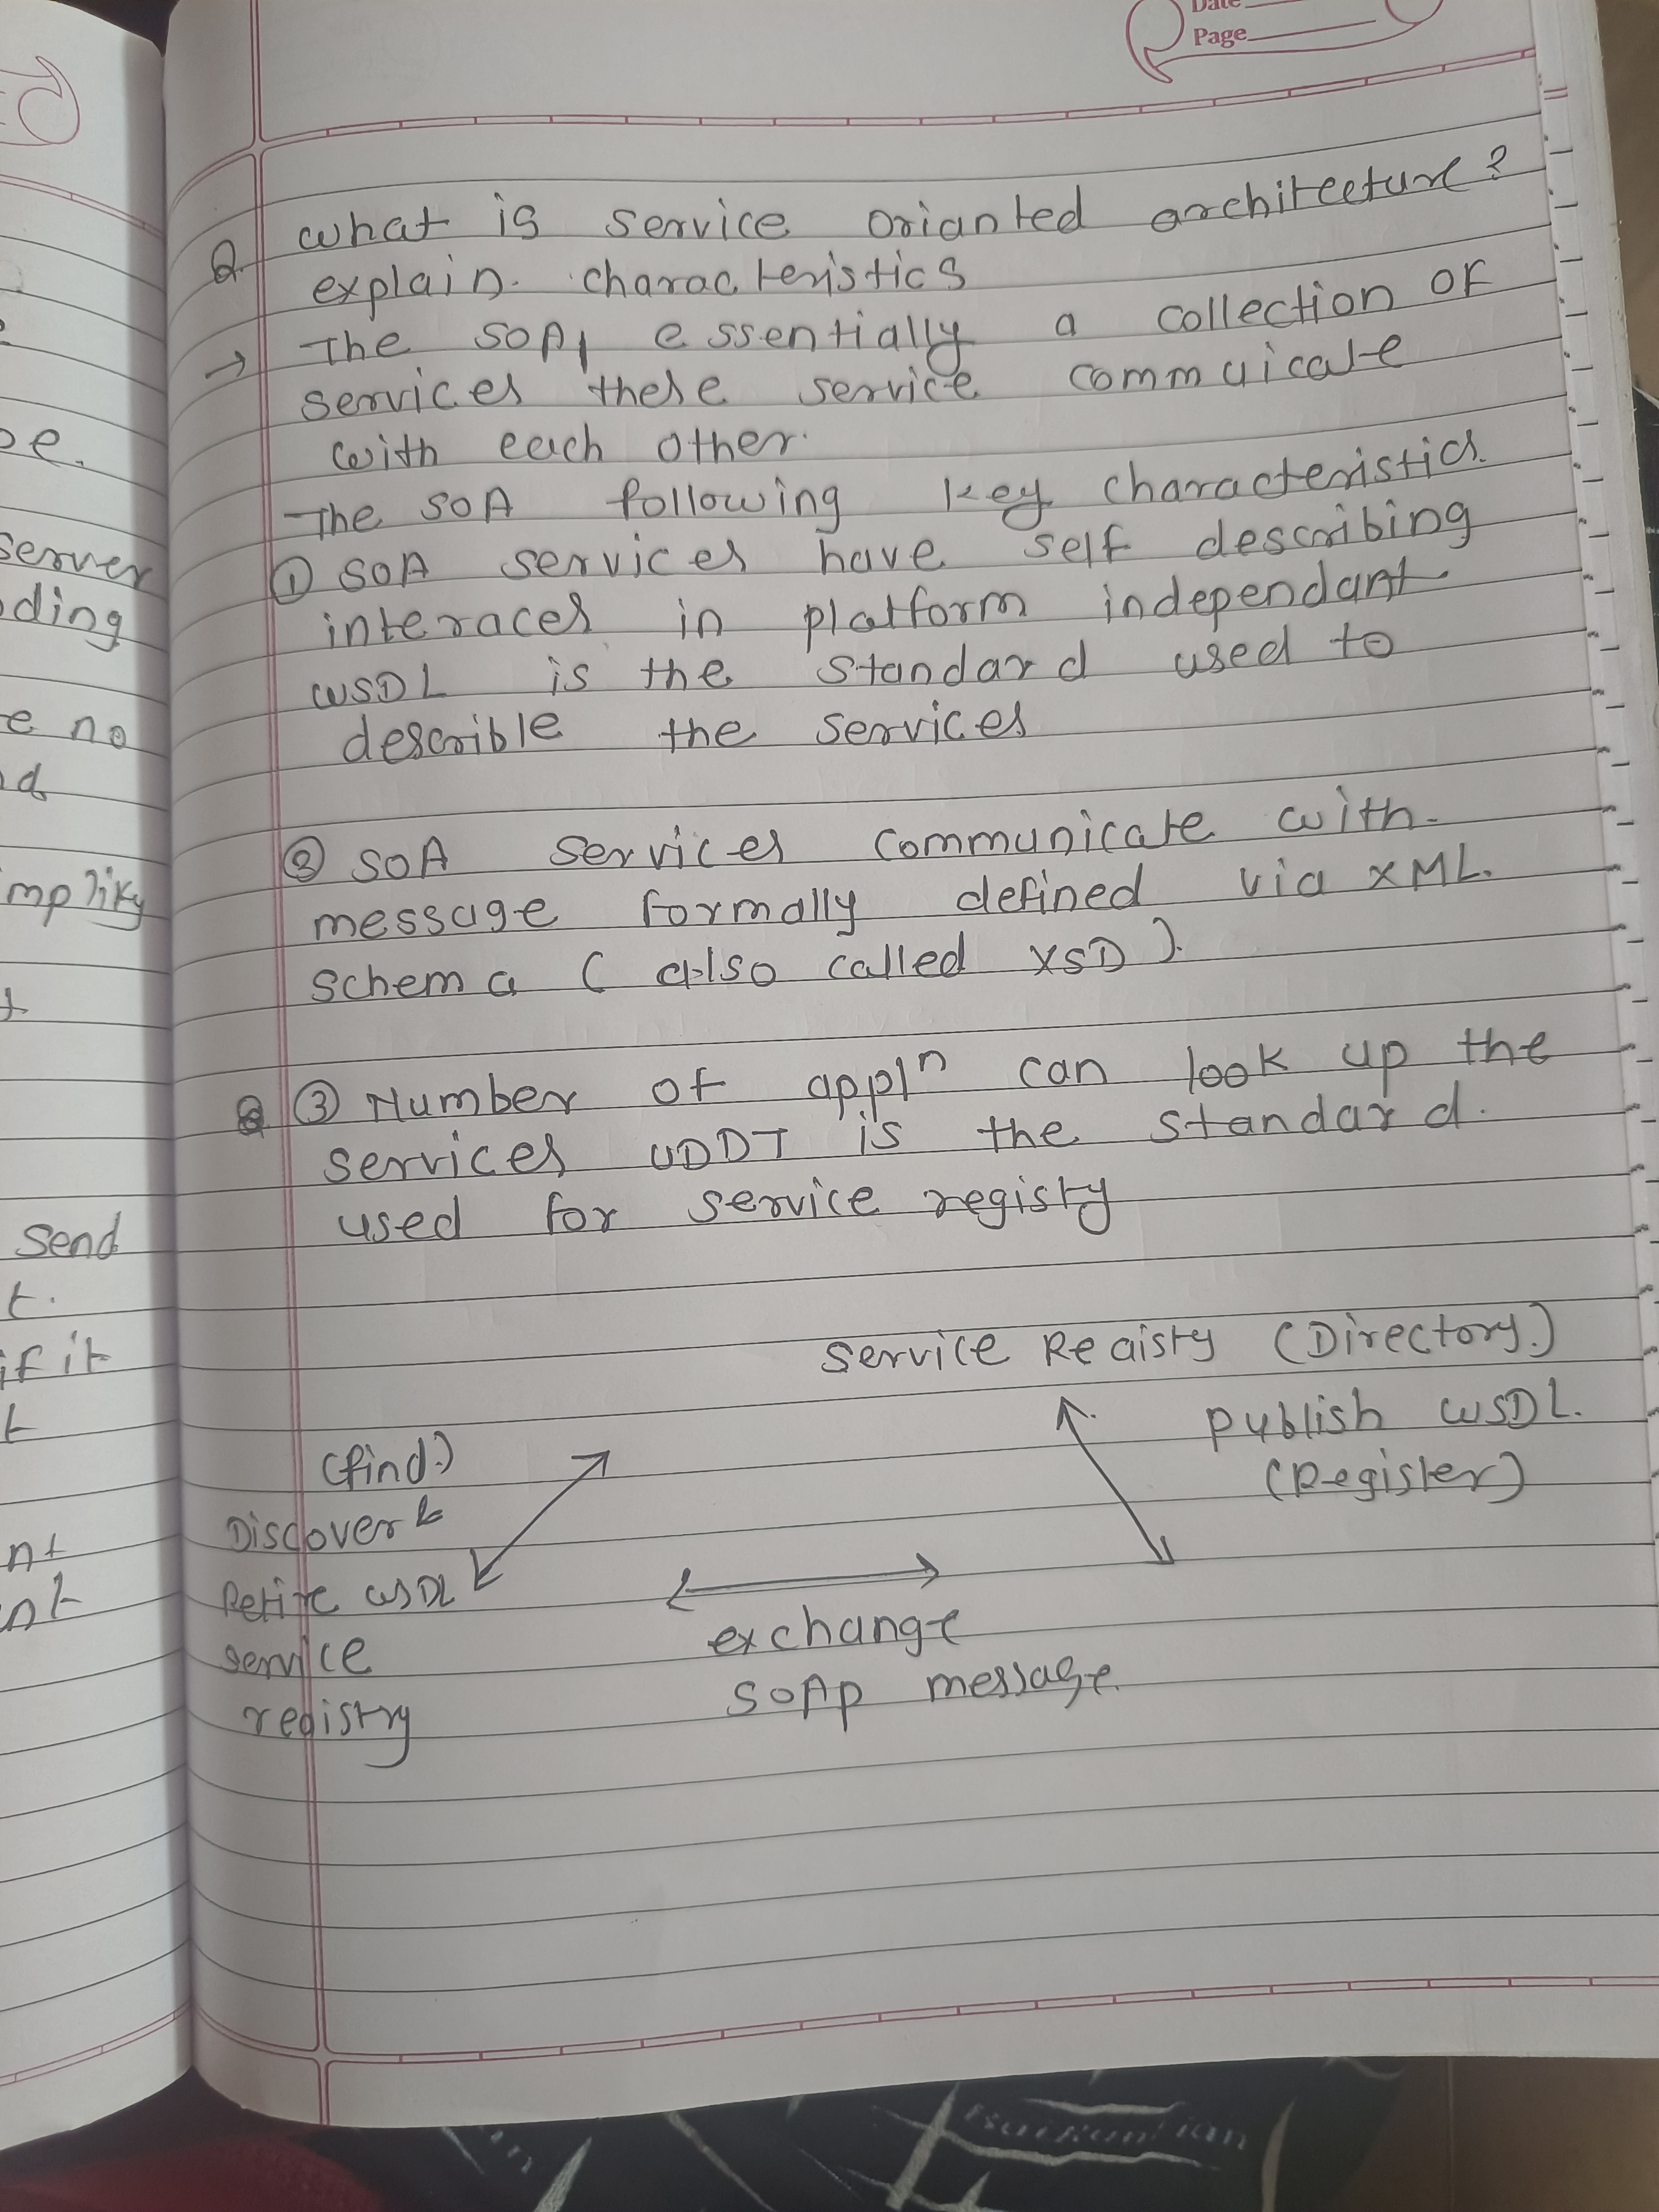 Date
Page
What is service orianted architecture?
Q.
explain. characteristics
→ The SOA, essentially a collection of
services these service commuicate
with each other.
The SOA following key characteristics.
① SOA services have self describing
interaces in platform independant
WSDL is the standard used to
describle the services
② SOA services communicate with
message formally defined via XML.
schema (also called XSD).
③ Number of appln can look up the
services UDDI is the standard.
used for service registy
Service Registy (Directory.)
publish WSDL.
(Register)
(find.)
Discover &
Retire WSDL
service
registry
exchange
SOAP message.
e.
server
ding
e no
d
t
send
t.
if it
t
nt
nt